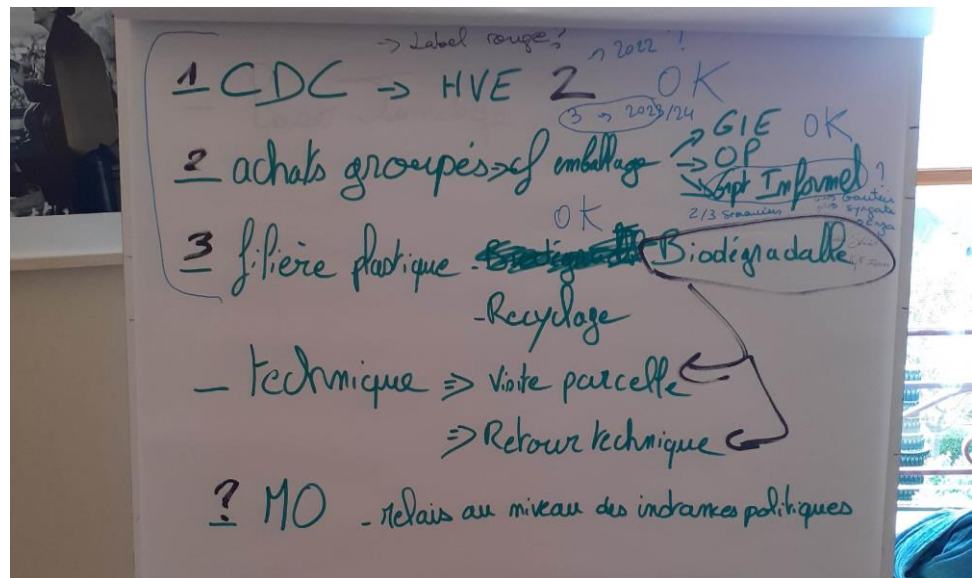 -> Label rouge?
1 CDC -> HVE 2 -> 2022 ! OK
3 -> 2023/24
2 achats groupés => cf emballage -> GIE OK
-> OP
-> Gpt Informel ?
2/3 semaines
OK
3 filière plastique - Biodégradable
- Recyclage
- technique => Visite parcelle
=> Retour technique
? MO - relais au niveau des instances politiques